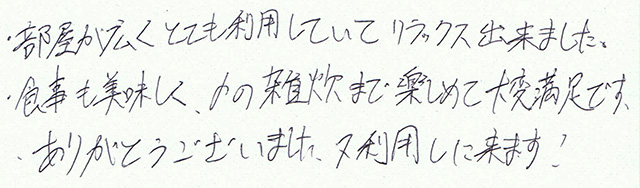 ・部屋が広くとても利用していてリラックス出来ました。
・食事も美味しく、〆の雑炊まで楽しめて大変満足です。
・ありがとうございました、又利用しに来ます!